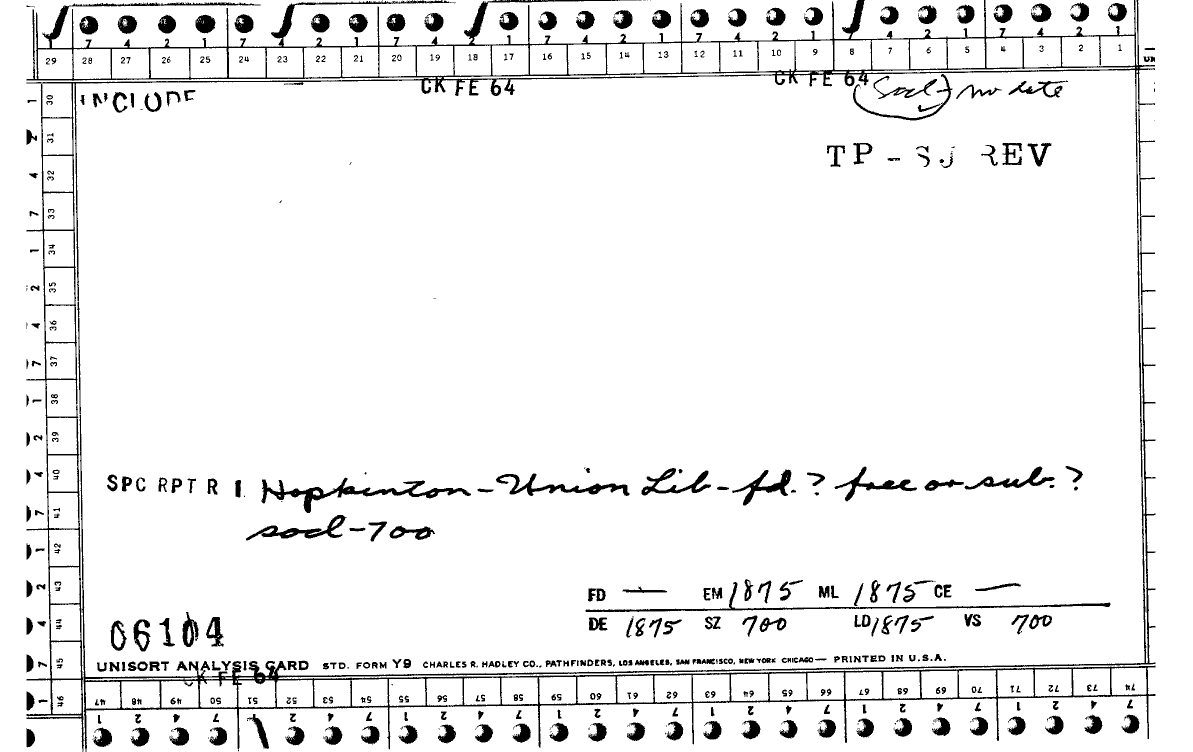 1 7 4 2 1 7 4 2 1 7 4 2 1 7 4 2 1 7 4 2 1 7 4 2 1 7 4 2 1
29 28 27 26 25 24 23 22 21 20 19 18 17 16 15 14 13 12 11 10 9 8 7 6 5 4 3 2 1
CK FE 64 CK FE 64
INCLUDE Socl - no date
TP - SJ REV
1 30
2 31
4 32
7 33
1 34
2 35
4 36
7 37
1 38
2 39
4 40
7 41
1 42
2 43
4 44
7 45
1 46
SPC RPT R 1 Hopkinton-Union Lib-fd.? free or sub.?
socl-700
FD — EM 1875 ML 1875 CE —
DE 1875 SZ 700 LD 1875 VS 700
06104
UNISORT ANALYSIS CARD STD. FORM Y9 CHARLES R. HADLEY CO., PATHFINDERS, LOS ANGELES, SAN FRANCISCO, NEW YORK CHICAGO — PRINTED IN U.S.A.
CK FE 64
47 48 49 50 51 52 53 54 55 56 57 58 59 60 61 62 63 64 65 66 67 68 69 70 71 72 73 74
1 2 4 7 1 2 4 7 1 2 4 7 1 2 4 7 1 2 4 7 1 2 4 7 1 2 4 7